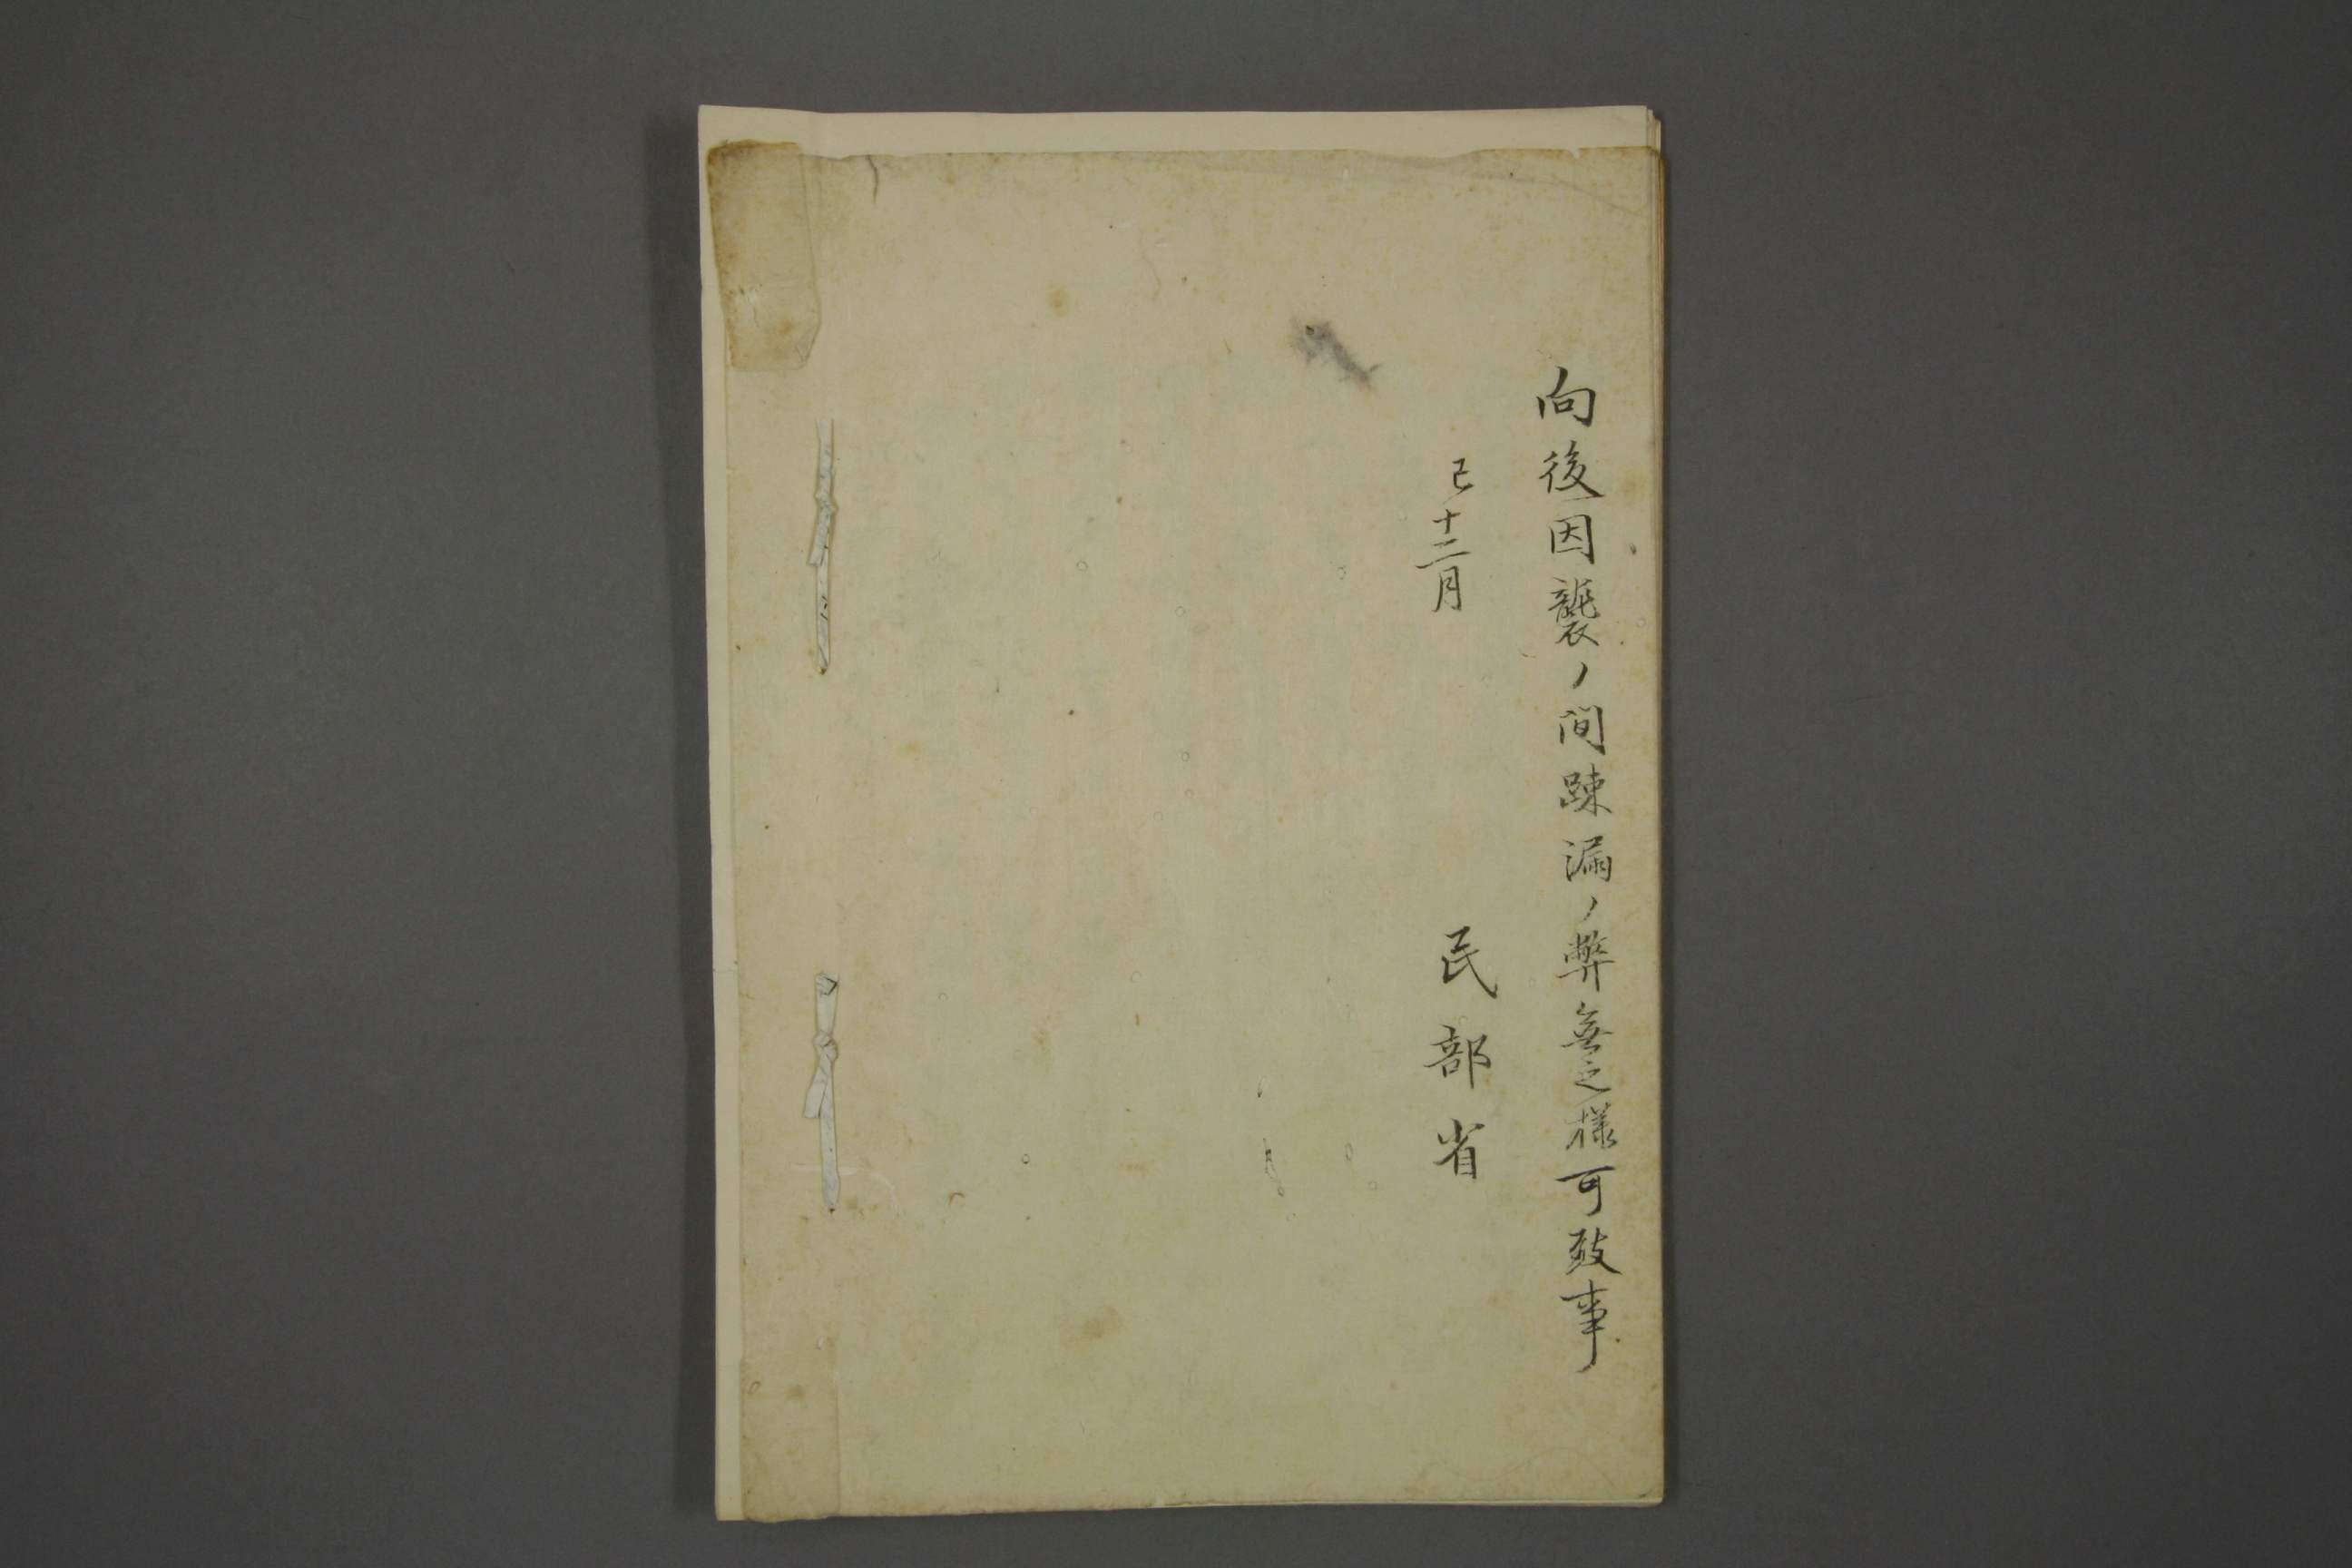 向後因襲ノ間踈漏ノ弊無之様可致事
巳十二月
民部省